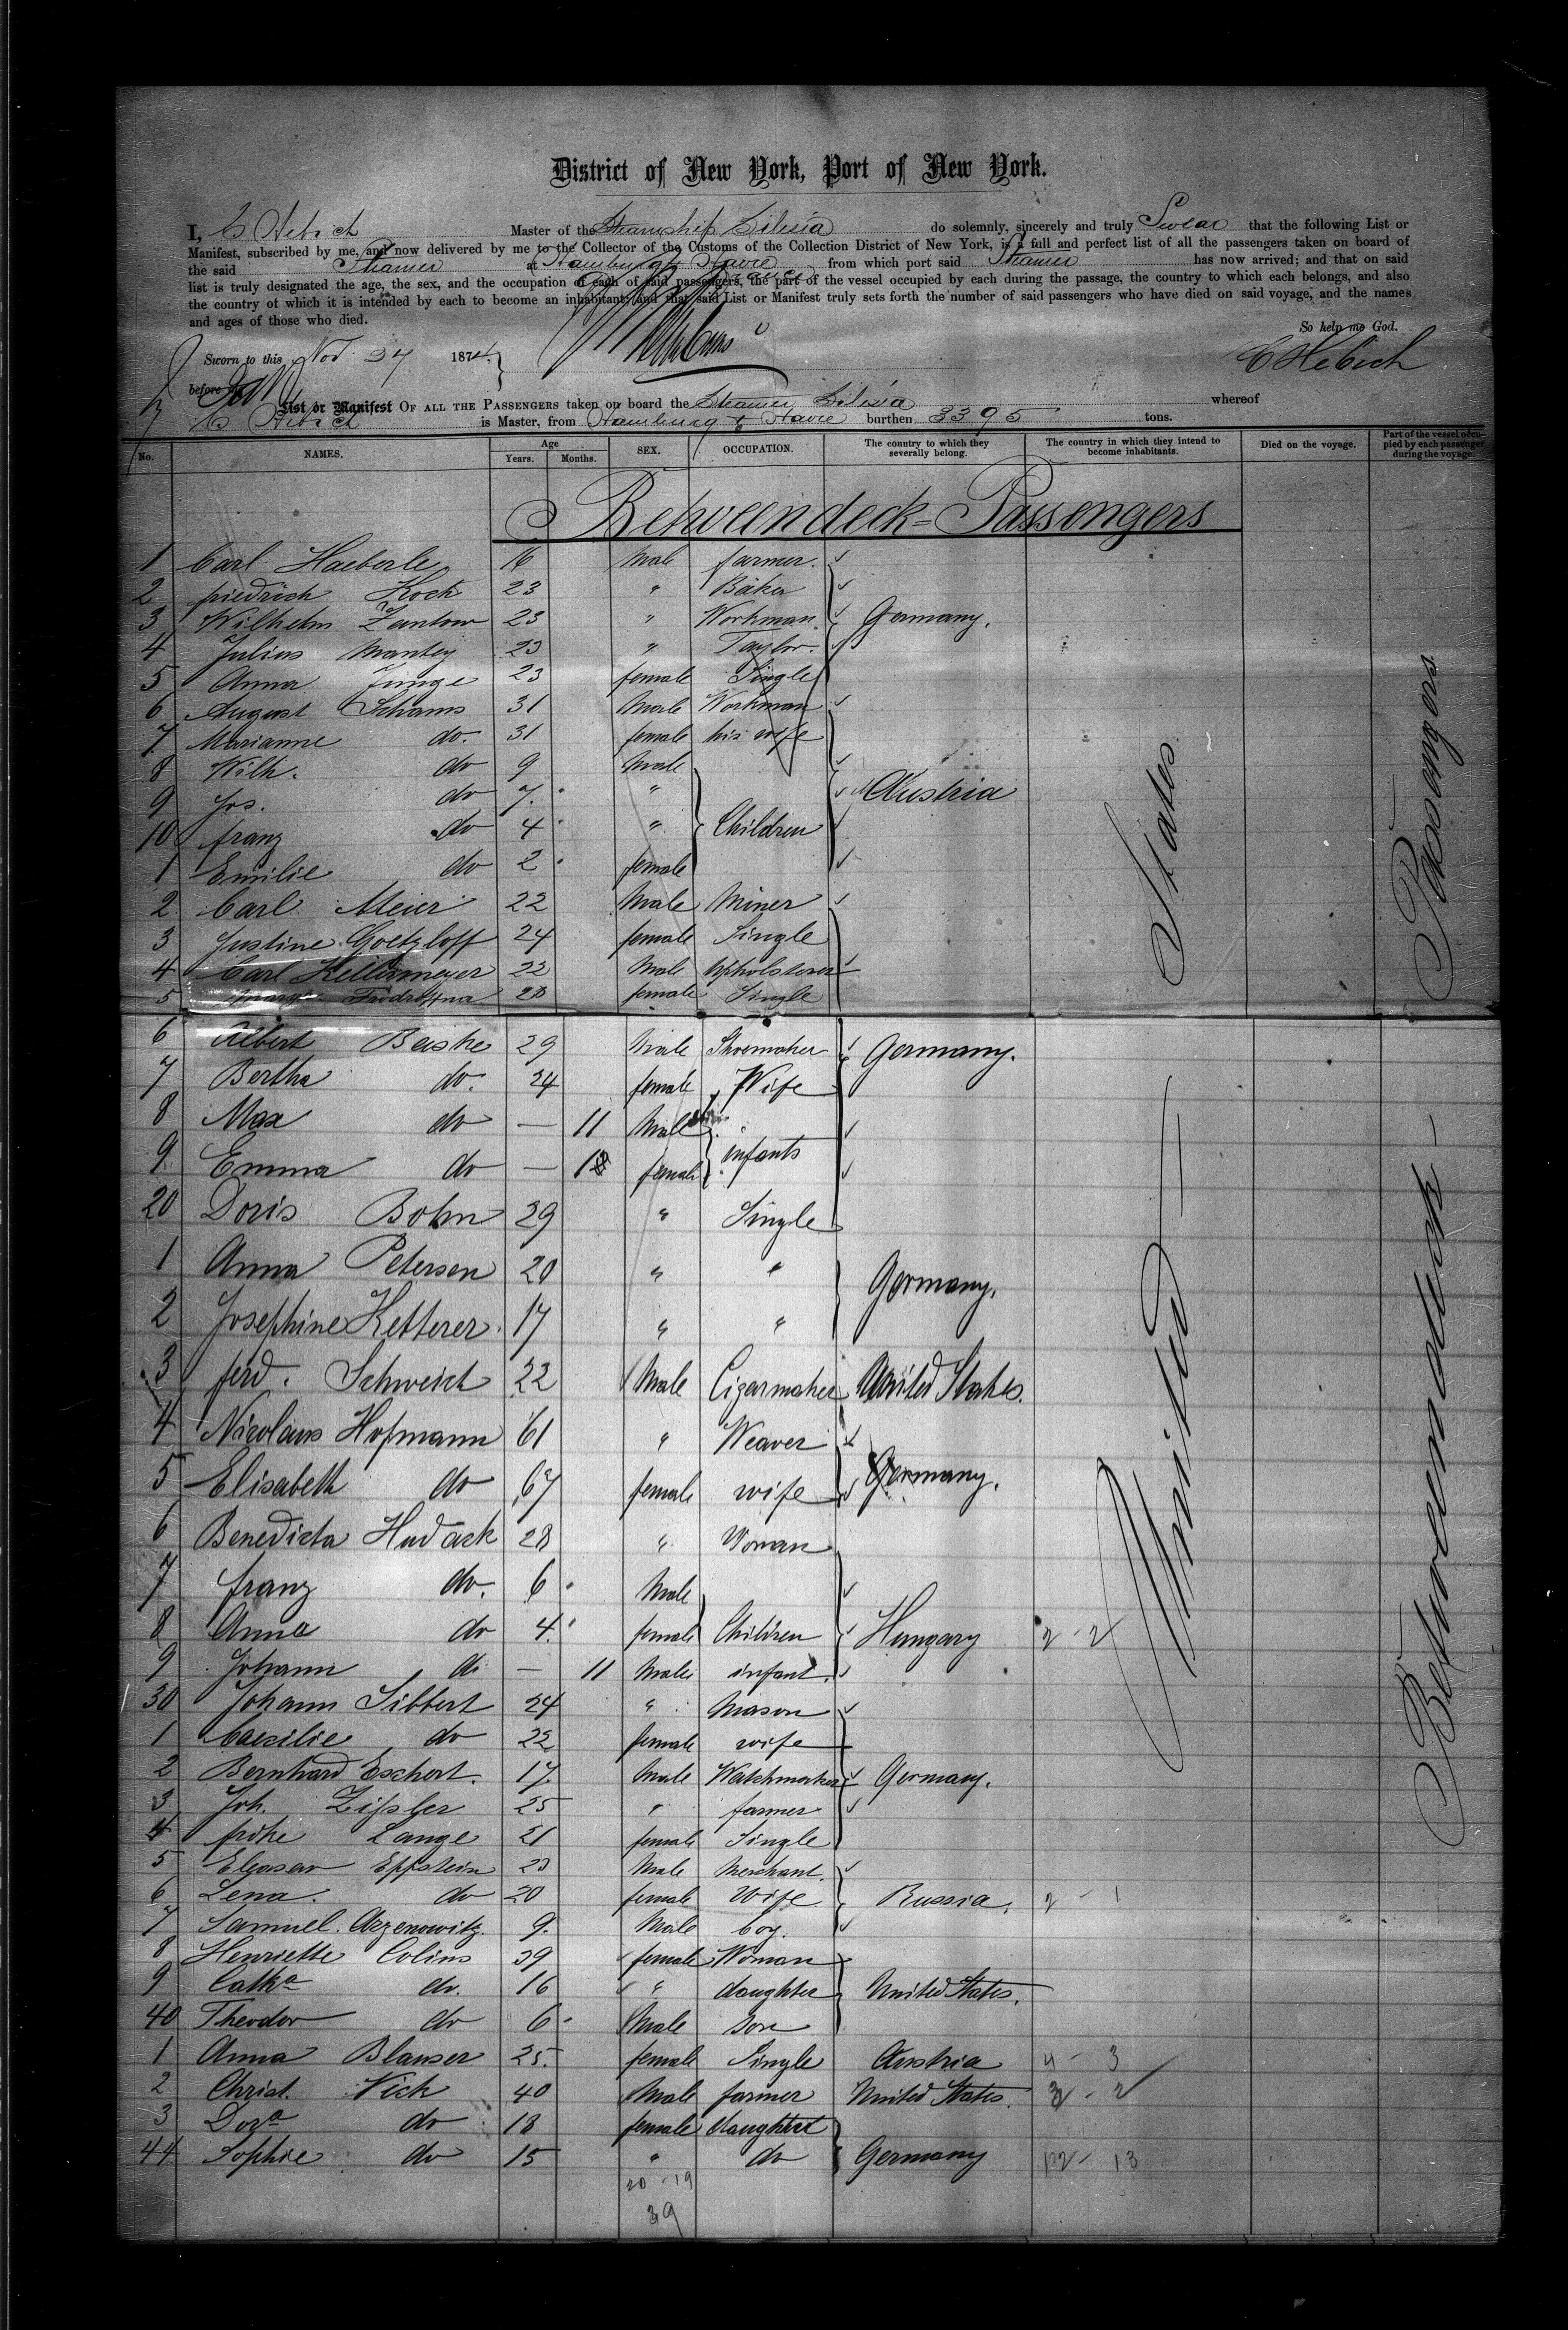 District of New York, Port of New York.
I, C Hebich Master of the Steamship Silesia do solemnly, sincerely and truly Swear that the following List or
Manifest, subscribed by me, and now delivered by me to the Collector of the Customs of the Collection District of New York, is a full and perfect list of all the passengers taken on board of
the said Steamer at Hamburg & Havre from which port said Steamer has now arrived; and that on said
list is truly designated the age, the sex, and the occupation of each of said passengers, the part of the vessel occupied by each during the passage, the country to which each belongs, and also
the country of which it is intended by each to become an inhabitant; and that said List or Manifest truly sets forth the number of said passengers who have died on said voyage, and the names
and ages of those who died.
So help me God.
Sworn to this Nov 27 1874
C Hebich
before
List or Manifest OF ALL THE PASSENGERS taken on board the Steamer Silesia whereof
C Hebich is Master, from Hamburg & Havre burthen 3395 tons.
No. NAMES. Age Years. Months. SEX. OCCUPATION. The country to which they severally belong. The country in which they intend to become inhabitants. Died on the voyage. Part of the vessel occupied by each passenger during the voyage.
Betweendeck=Passengers
1 Carl Haeberle 16 Male farmer.
2 friedrich Koch 23 " Baker
3 Wilhelm Zantow 23 " Workman Germany.
4 Julius Mantey 23 " Taylor
5 Anna Junge 23 female Single
6 August Schams 31 Male Workman
7 Marianne do. 31 female his wife
8 Wilh. do 9 Male
9 Jos. do 7. " Austria
10 franz do 4 " Children
1 Emilie do 2 female
2 Carl Meier 22 Male Miner
3 Justine Goetzloff 24 female Single
4 Carl Kellermeyer 22 Male Upholsterer
5 female Single
6 Albert Baske 29 Male Shoemaker Germany.
7 Bertha do. 24 female Wife
8 Max do — 11 Male
9 Emma do — female infants
20 Doris Bohn 29 " Single
1 Anna Petersen 20 " " Germany.
2 Josephine Ketterer 17 " "
3 ferd. Schweich 22 Male Cigarmaker United States.
4 Nicolaus Hofmann 61 " Weaver
5 Elisabeth do 67 female wife Germany.
6 Benedicta Hudack 28 " Woman
7 franz do. 6 Male
8 Anna do 4 female Children Hungary 2 - 2
9 Johann do — 11 Male infant.
30 Johann Sibbert 24 " Mason
1 Caecilie do 22 female wife
2 Bernhard Eschert. 17 Male Watchmaker Germany.
3 Joh. Zissler 25 " farmer
4 frike Lange 21 female Single
5 Eleasar Eppstein 23 Male Merchant.
6 Lena. do 20 female Wife Russia. 2 - 1
7 Samuel Arzenowitz. 9. Male boy.
8 Henriette Colins 39 female Woman
9 Catha do. 16 " daughter United States.
40 Theodor do 6 Male Son
1 Anna Blauser 25. female Single Austria 4 - 3
2 Christ. Vick 40 Male farmer United States.
3 Dora do 18 female daughter
44 Sophie do 15 " do Germany 12 - 13
20 - 19
39
United States
Betweendeck Passengers